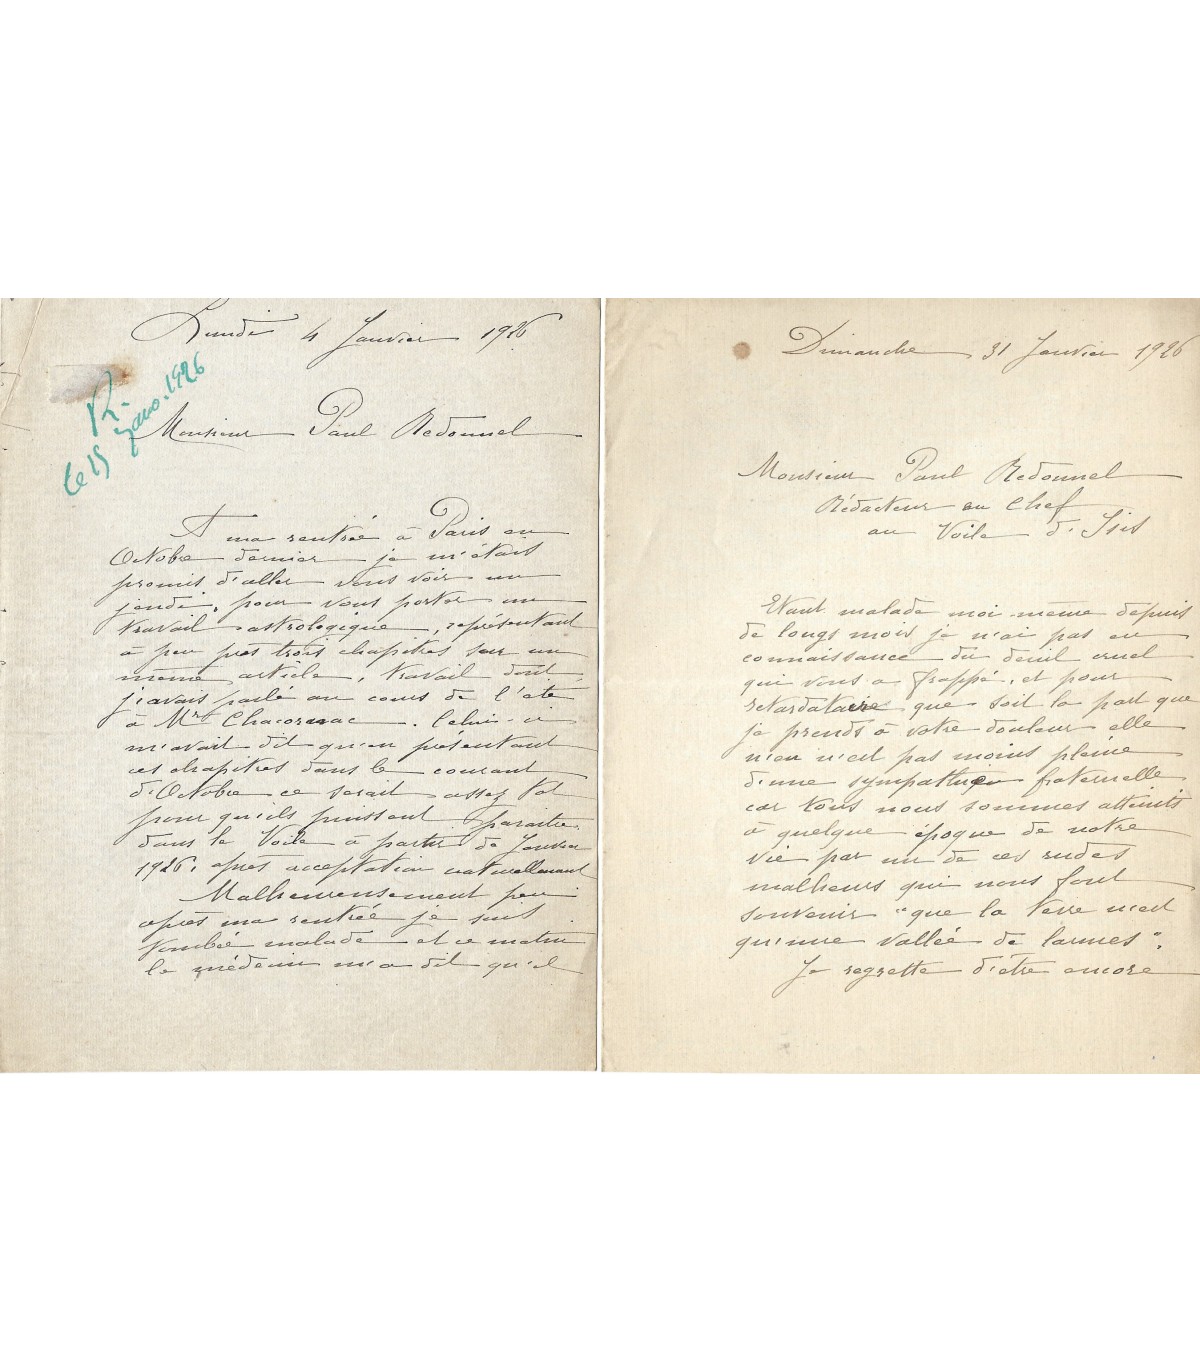 Lundi 4 Janvier 1926
R.
le 15 janv. 1926
Monsieur Paul Redonnel
A ma rentrée à Paris en
Octobre dernier je m'étais
promis d'aller vous voir un
jeudi, pour vous porter un
travail astrologique, représentant
à peu près trois chapitres sur un
même article, travail dont
j'avais parlé au cours de l'été
à Mr Chacornac. Celui-ci
m'avait dit qu'en présentant
ces chapitres dans le courant
d'Octobre ce serait assez tot
pour qu'ils puissent paraitre
dans le Voile à partir de Janvier
1926, après acceptation naturellement
Malheureusement peu
après ma rentrée je suis
tombée malade et ce matin
le médecin m'a dit qu'il
Dimanche 31 Janvier 1926
Monsieur Paul Redonnel
Rédacteur en Chef
au Voile d'Isis
Etant malade moi-même depuis
de longs mois je n'ai pas eu
connaissance du deuil cruel
qui vous a frappé, et pour
retardataire que soit la part que
je prends à votre douleur elle
n'en n'est pas moins pleine
d'une sympathie fraternelle
car tous nous sommes atteints
à quelque époque de notre
vie par un de ces rudes
malheurs qui nous font
souvenir "que la terre n'est
qu'une vallée de larmes".
Je regrette d'être encore